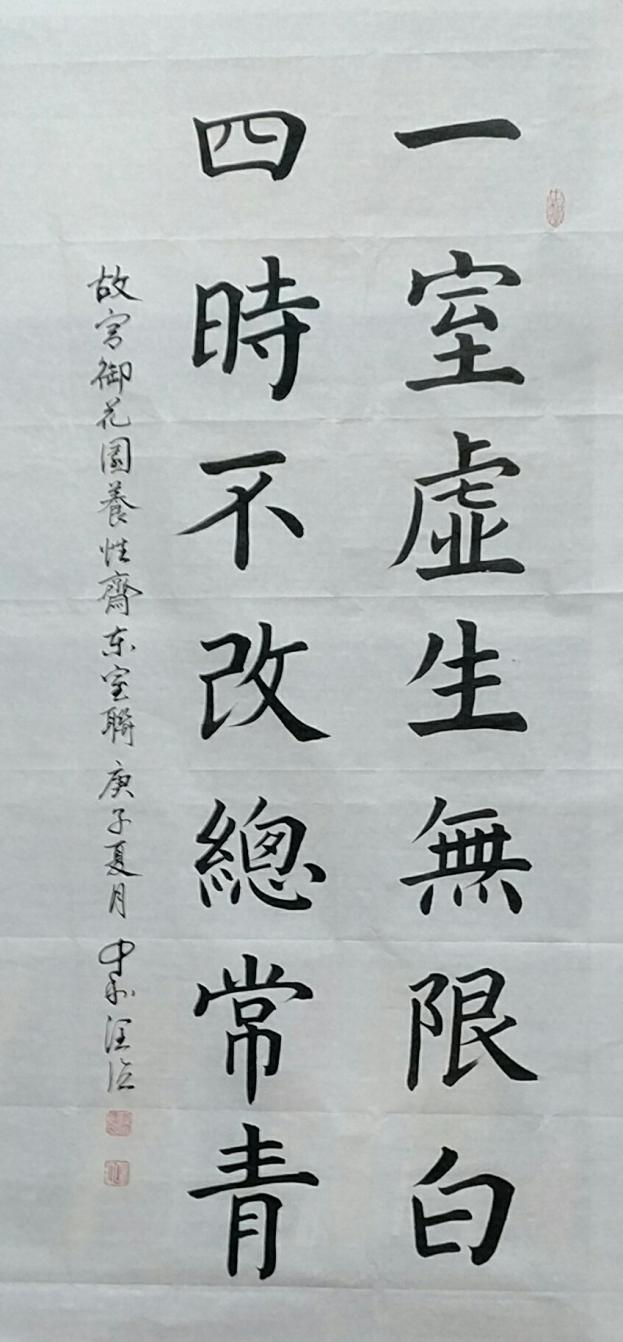 一室虛生無限白
四時不改總常青
故宮御花園養性齋东室聯 庚子夏月 中和汪波